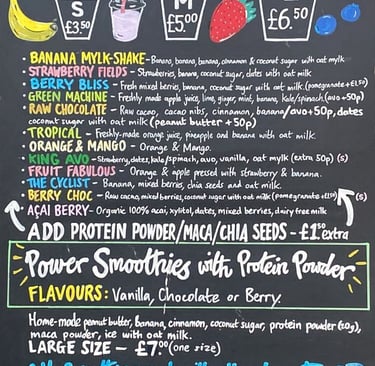 S M L
£3.50 £5.00 £6.50
• BANANA MYLK-SHAKE - Banana, banana, banana, cinnamon & coconut sugar with oat mylk
• STRAWBERRY FIELDS - Strawberries, banana, coconut sugar, dates with oat milk.
• BERRY BLISS - Fresh mixed berries, banana, coconut sugar with oat milk. (pomegranate + £1.50)
• GREEN MACHINE - Freshly made apple juice, lime, ginger, mint, banana, kale/spinach (avo + 50p)
• RAW CHOCOLATE - Raw cacao, cacao nibs, cinnamon, banana/avo + 50p, dates
coconut sugar with oat milk (peanut butter + 50p)
• TROPICAL - Freshly-made orange juice, pineapple and banana with oat milk.
• ORANGE & MANGO - Orange & Mango.
• KING AVO - Strawberry, dates, kale/spinach, avo, vanilla, oat mylk (extra 50p) (s)
• FRUIT FABULOUS - Orange & apple pressed with strawberry & banana.
• THE CYCLIST - Banana, mixed berries, chia seeds and oat milk.
• BERRY CHOC - Raw cacao, mixed berries, coconut sugar with oat milk (pomegranate + £1.50) (s)
• AÇAI BERRY - Organic 100% acai, xylitol, dates, mixed berries, dairy free milk
ADD PROTEIN POWDER/MACA/CHIA SEEDS - £1.50 extra
Power Smoothies with Protein Powder
FLAVOURS: Vanilla, Chocolate or Berry.
Home-made peanut butter, banana, cinnamon, coconut sugar, protein powder (20g),
maca powder, ice with oat milk.
LARGE SIZE - £7.00 (one size)